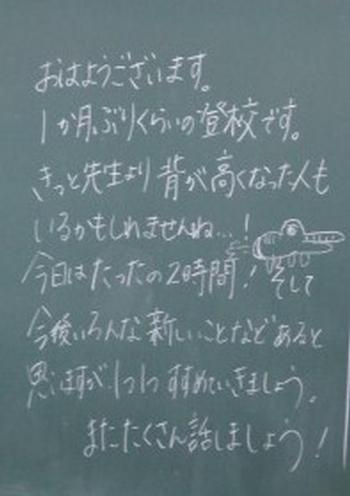 おはようございます。
1か月ぶりくらいの登校です。
きっと先生より背が高くなった人も
いるかもしれませんね…！
今日はたったの2時間！そして
今後いろんな新しいことなどあると
思いますが1つ1つすすめていきましょう。
またたくさん話しましょう！